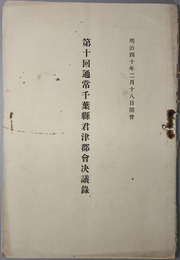 明治四十年二月十八日開會
第十回通常千葉縣君津郡會决議錄